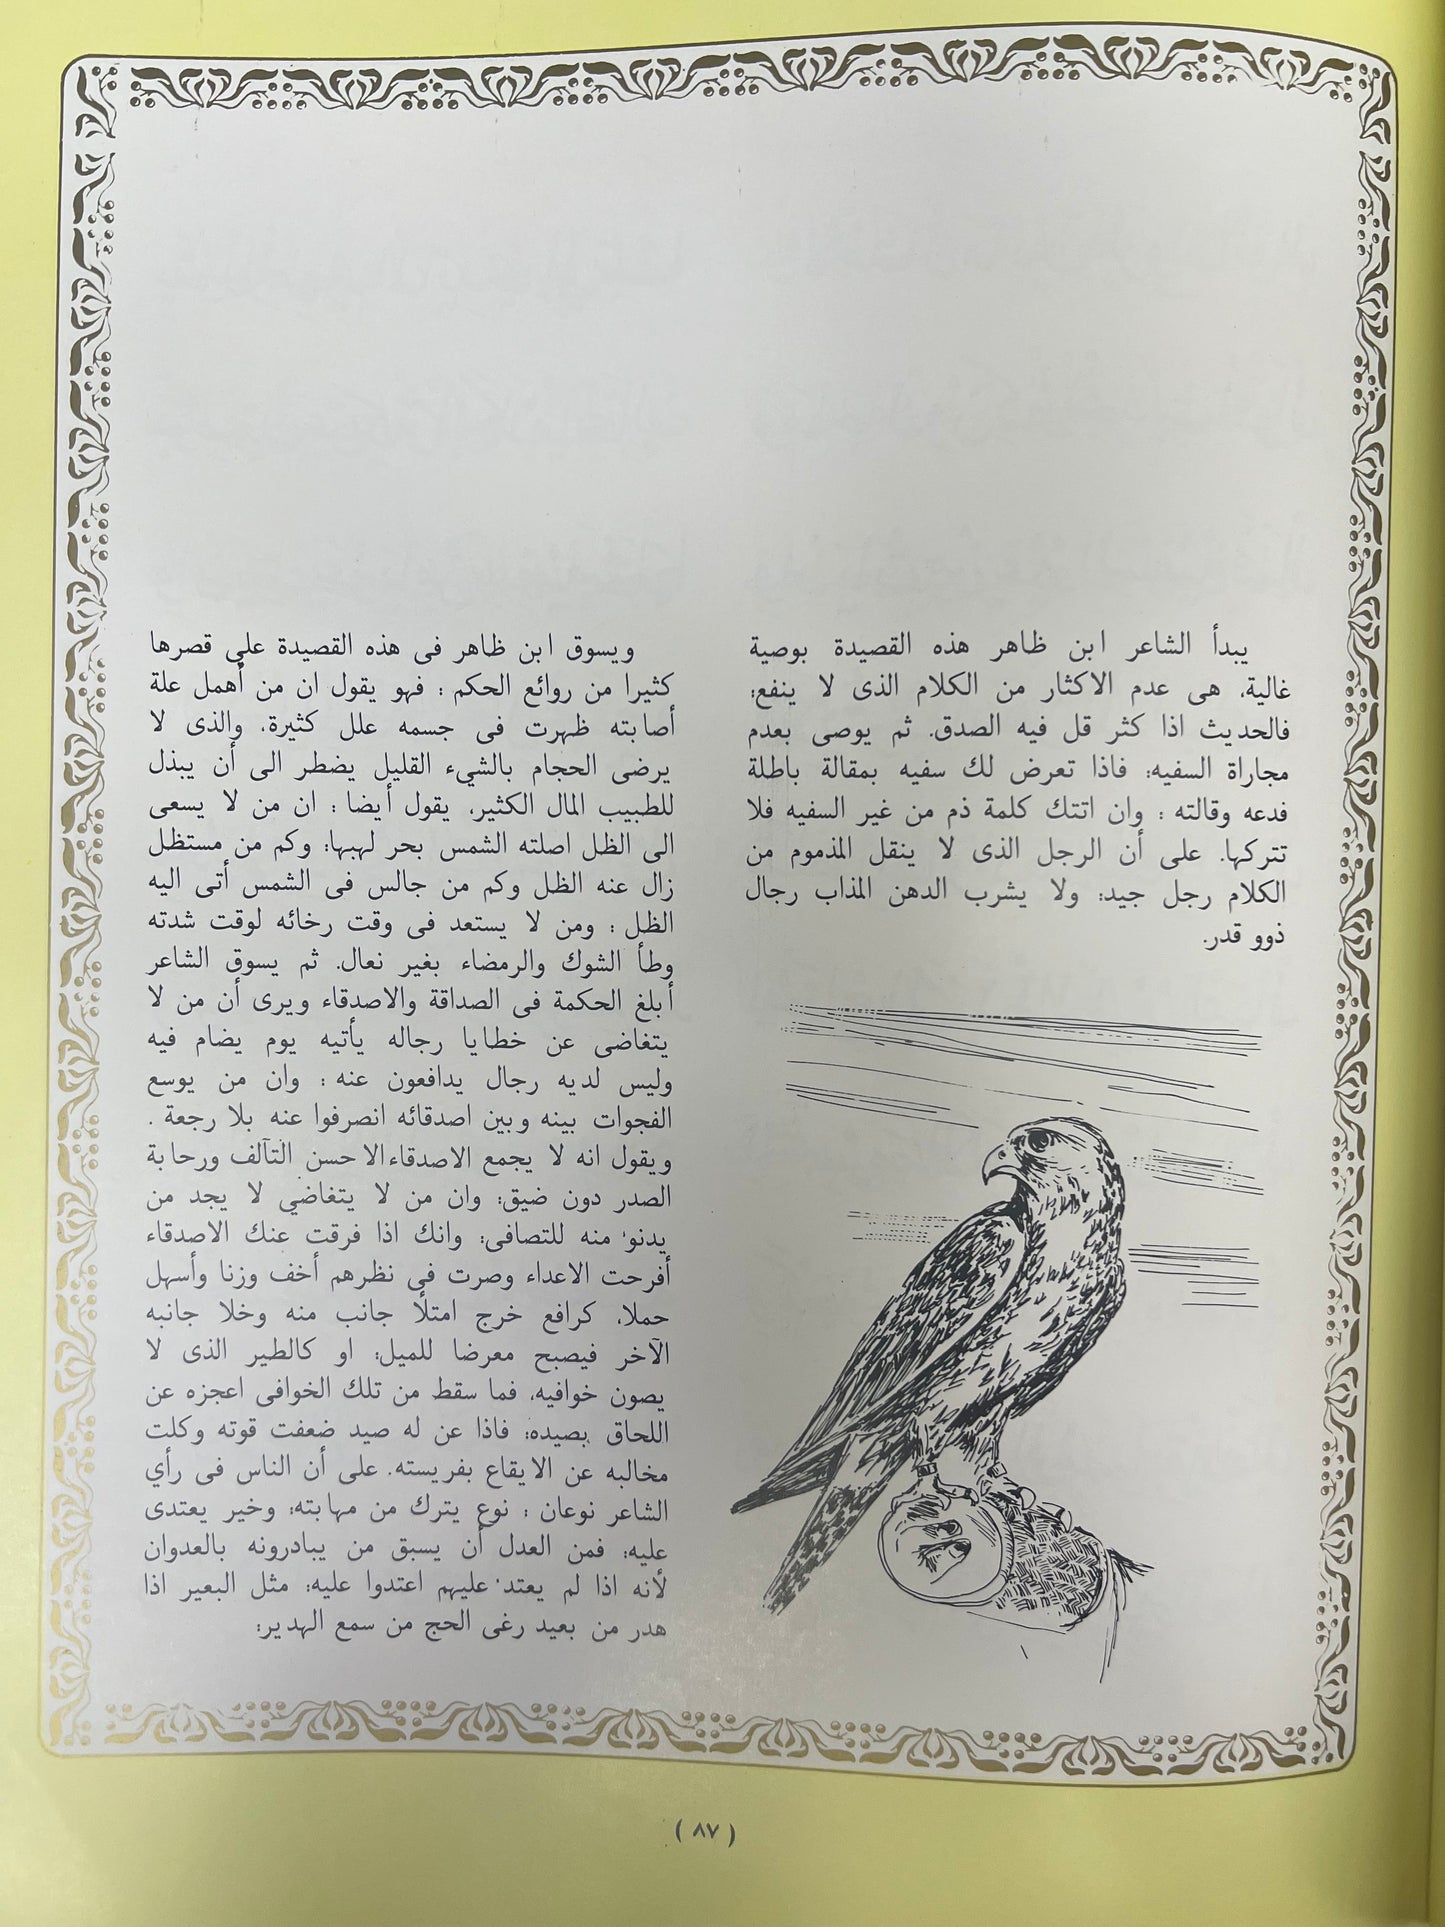 يبدأ الشاعر ابن ظاهر هذه القصيدة بوصية
غالية، هى عدم الاكثار من الكلام الذى لا ينفع:
فالحديث اذا كثر قل فيه الصدق. ثم يوصى بعدم
مجاراة السفيه: فاذا تعرض لك سفيه بمقالة باطلة
فدعه وقالته : وان اتتك كلمة ذم من غير السفيه فلا
تتركها. على أن الرجل الذى لا ينقل المذموم من
الكلام رجل جيد: ولا يشرب الدهن المذاب رجال
ذوو قدر.
ويسوق ابن ظاهر فى هذه القصيدة على قصرها
كثيرا من روائع الحكم : فهو يقول ان من أهمل علة
أصابته ظهرت فى جسمه علل كثيرة، والذى لا
يرضى الحجام بالشيء القليل يضطر الى أن يبذل
للطبيب المال الكثير، يقول أيضا : ان من لا يسعى
الى الظل اصلته الشمس بحر لهبها: وكم من مستظل
زال عنه الظل وكم من جالس فى الشمس أتى اليه
الظل : ومن لا يستعد فى وقت رخائه لوقت شدته
وطأ الشوك والرمضاء بغير نعال. ثم يسوق الشاعر
أبلغ الحكمة فى الصداقة والاصدقاء ويرى أن من لا
يتغاضى عن خطايا رجاله يأتيه يوم يضام فيه
وليس لديه رجال يدافعون عنه : وان من يوسع
الفجوات بينه وبين اصدقائه انصرفوا عنه بلا رجعة .
ويقول انه لا يجمع الاصدقاءالا حسن التآلف ورحابة
الصدر دون ضيق: وان من لا يتغاضي لا يجد من
يدنو منه للتصافى: وانك اذا فرقت عنك الاصدقاء
أفرحت الاعداء وصرت فى نظرهم أخف وزنا وأسهل
حملا، كرافع خرج امتلأ جانب منه وخلا جانبه
الآخر فيصبح معرضا للميل: او كالطير الذى لا
يصون خوافيه، فما سقط من تلك الخوافى اعجزه عن
اللحاق بصيده: فاذا عن له صيد ضعفت قوته وكلت
مخالبه عن الايقاع بفريسته. على أن الناس فى رأي
الشاعر نوعان : نوع يترك من مهابته: وخير يعتدى
عليه: فمن العدل أن يسبق من يبادرونه بالعدوان
لأنه اذا لم يعتد عليهم اعتدوا عليه: مثل البعير اذا
هدر من بعيد رغى الحج من سمع الهدير:
( ٨٧ )